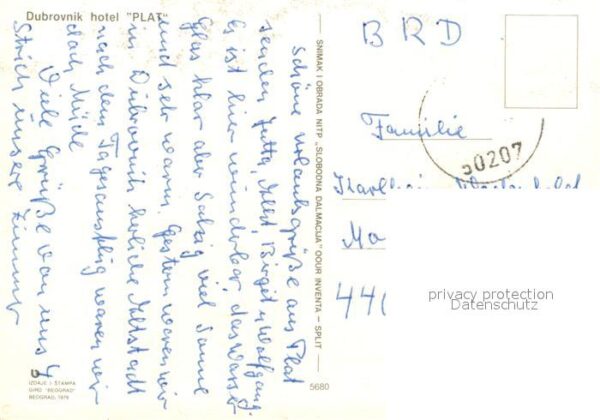 Dubrovnik hotel "PLAT"
schöne Urlaubsgrüße aus Plat
senden Jutta, Birgit u Wolfgang.
Es ist hier wunderbar, das Wasser
Glas klar aber Salzig viel Sonne
und sehr warm. Gestern waren wir
in Dubrovnik herliche Altstadt
nach dem Tagesausflug waren wir
doch Müde
Viele Grüße von uns 4
Strich unsere Zimmer
IZDAJE I ŠTAMPA
GIRO "BEOGRAD"
BEOGRAD, 1979
SNIMAK I OBRADA NITP „SLOBODNA DALMACIJA" OOUR INVENTA – SPLIT
5680
BRD
50207
Familie
Ma
440
privacy protection
Datenschutz